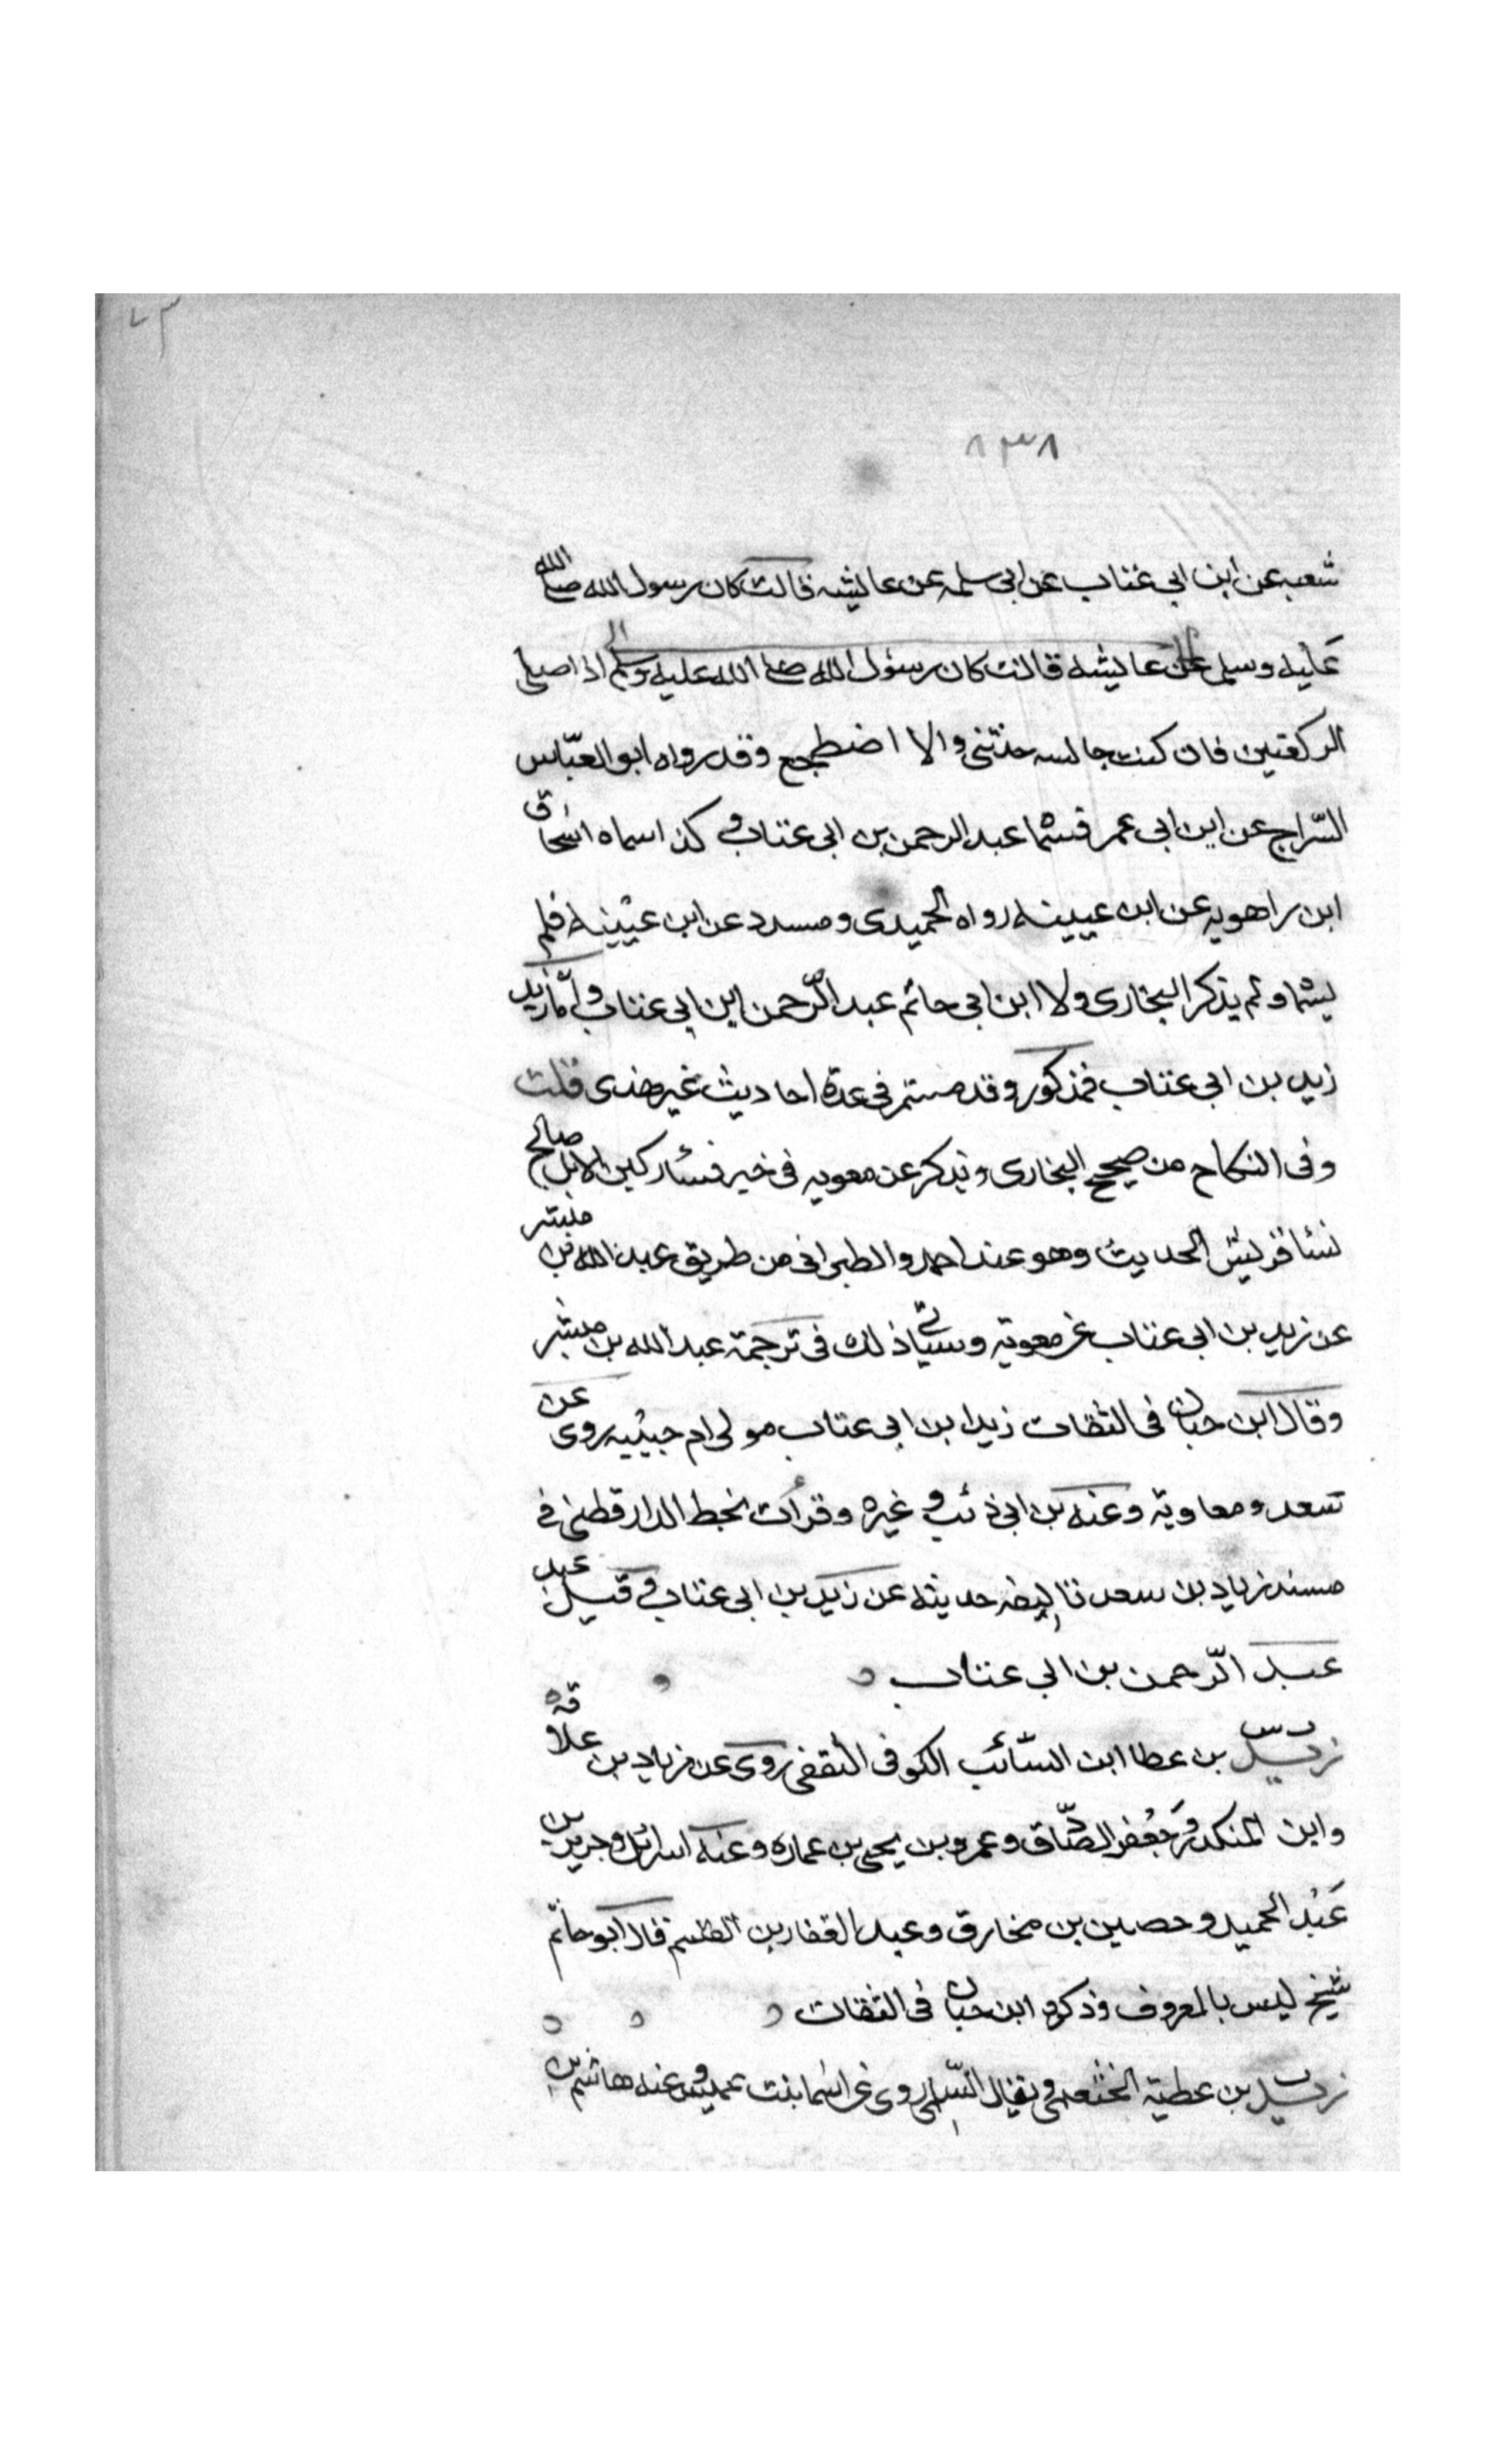 ٧٣
٨٣٨
شعبه عن ابن ابي عتاب عن ابي سلمه عن عايشه قالت كان رسول الله صلى الله
عليه وسلم عن عايشه قالت كان رسول الله صلى الله عليه وسلم اذا صلى
الركعتين فان كنت جالسه حدثني والا اضطجع وقد رواه ابو العبّاس
السّراج عن ابن ابي عمر فسّما عبد الرحمن بن ابي عتاب و كذا سماه اسحاق
ابن راهويه عن ابن عيينه رواه الحميدى ومسدد عن ابن عيينه فلم
يسمّا ولم يذكر البخارى ولا ابن ابي حاتم عبد الرّحمن ابن ابي عتاب وامّا زيد
زيد بن ابي عتاب فمذكور وقد في عدة احاديث غير هذى قلت
وفى النكاح من صحيح البخارى ويذكر عن معويه فى خير نسا ركبن الابل صالح
نسا قريش الحديث وهو عند احمد والطبرانى من طريق عبد الله بن مبشر
عن زيد بن ابى عتاب عن معوية وسياتي ذلك فى ترجمة عبد الله بن مبشر
وقال ابن حبان فى الثقات زيد ابن ابى عتاب مولى ام حبيبه روى عن
سعد ومعاوية وعنه بن ابى ذئب و غيره وقرأت بخط الدارقطنى في
مسند زياد بن سعد حديثه عن زيد بن ابى عتاب و قيل عبد
عبد الرّحمن بن ابى عتاب
زيد س بن عطا ابن السّائب الكوفى الثقفى روى عن زياد بن علاقه
وابن المنكدر وجعفر الصّادق وعمرو بن يحيى بن عماره وعنه اسرائل وجرير بن
عبد الحميد وحصين بن مخارق وعبد الغفار بن القاسم قال ابو حاتم
شيخ ليس بالمعروف وذكره ابن حبان فى الثقات
زيد بن عطية الخثعمى ويقال السّلمى روى عن اسما بنت عميس وعنه هاشم بن